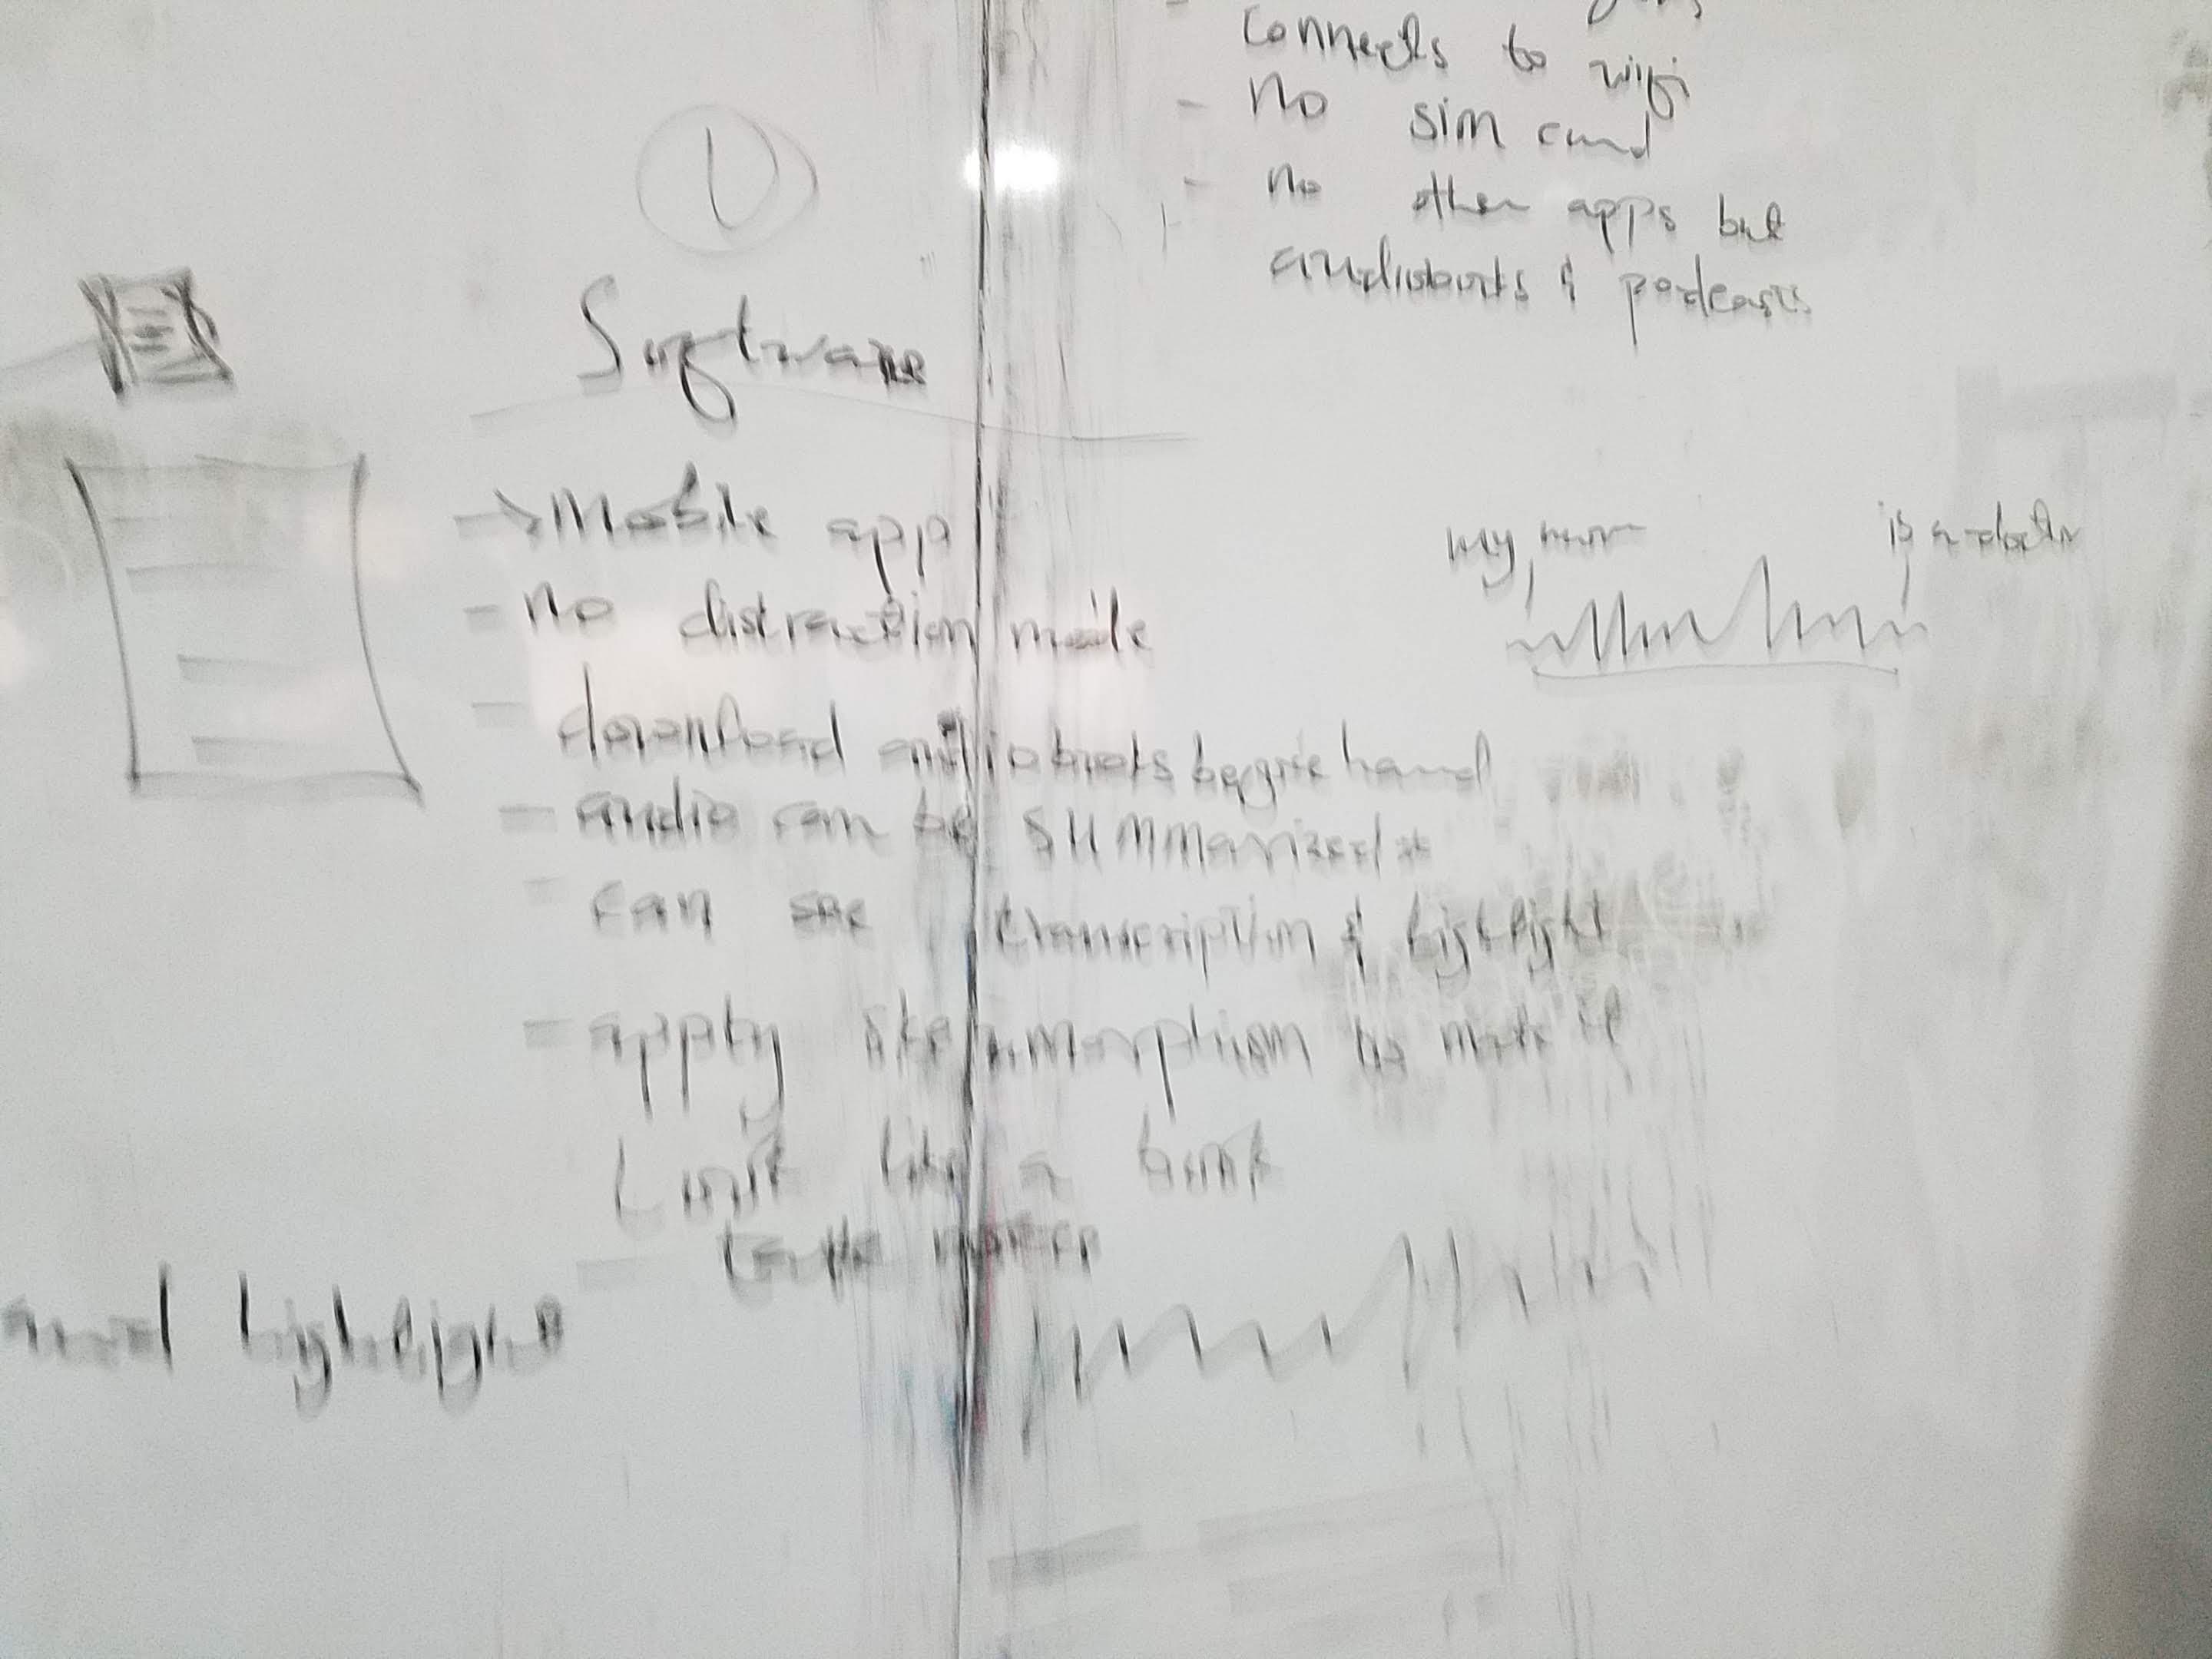 connects to wifi
- no sim card
- no other apps but
audiobooks & podcasts
1
Software
→ Mobile app
- no distraction mode
- download audiobooks beforehand
- audio can be summarized
- can see transcription & highlight
- apply skeumorphism to make it
look like a book
-
and highlight
my mom
is a doctor